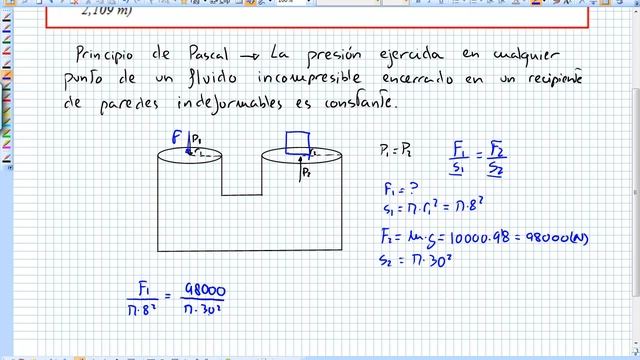 2,109 m)
Principio de Pascal → La presión ejercida en cualquier
punto de un fluido incompresible encerrado en un recipiente
de paredes indeformables es constante.
F P₁
r₁
r₂
P₂
P₁ = P₂
F₁/S₁ = F₂/S₂
F₁ = ?
S₁ = π·r₁² = π·8²
F₂ = m·g = 10000·9'8 = 98000(N)
S₂ = π·30²
F₁/π·8² = 98000/π·30²